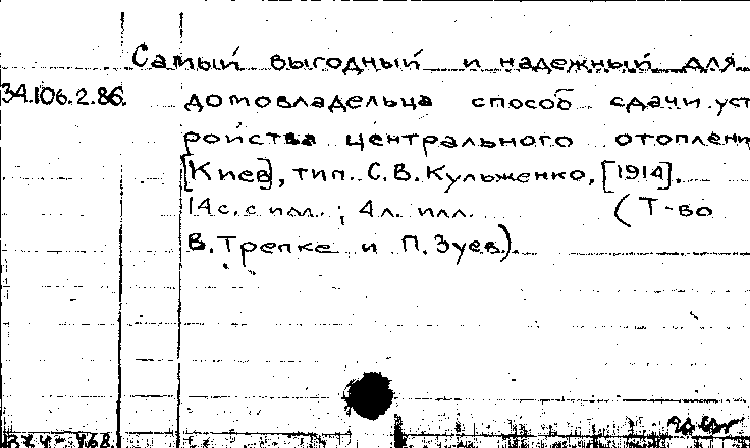 Самый выгодный и надежный для
34.106.2.86. домовладельца способ сдачи уст
ройства центрального отоплени
[Киев], тип. С.В.Кульженко, [1914].
14с. с илл. ; 4л. илл. (Т-во
В.Трепке и П.Зуев).